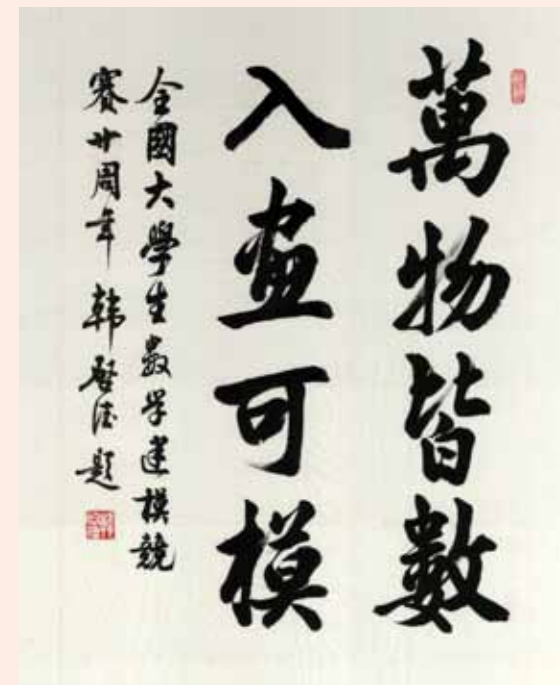 萬物皆數
入畫可模
全國大學生数学建模競
賽廿周年 韩啓德題